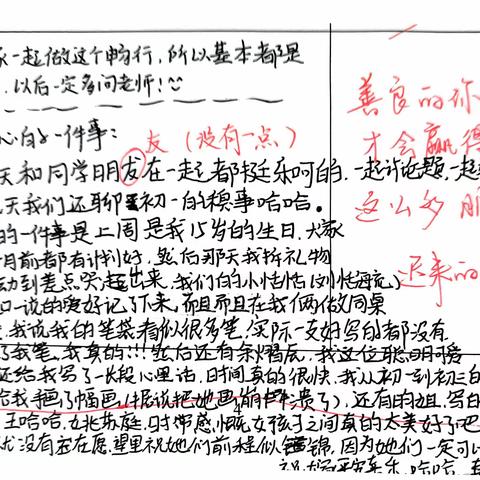 一起做这个畅行，所以基本都是
，以后一定多问老师！
心白勺一件事：
友（没有一点）
天和同学朋友在一起都挺乐呵的，一起讨论题，一起
天我们还聊初一的糗事哈哈。
的一件事是上周是我15岁的生日，大家
月前都有计划好，然后那天我拆礼物
动到差点哭出来，我们的小恬恬
一说的爱好记了下来，而且而且在我俩做同桌
，我说我的笔袋看似很多笔，实际一支好写的都没有
了我笔，我真的！！！然后还有余，我这位聪明可爱
还给我写了一长段心里话，时间真的很快，我从初一到初三的
给我画了幅画，(据说把她画崩溃了)，还有的姐，写的
王哈哈，时常感慨，女孩子之间真的太美好了吧
我没有在愿望里祝她们前程似锦，因为她们一定可以
哈哈，
善良的你
才会赢得
这么多朋
迟来的